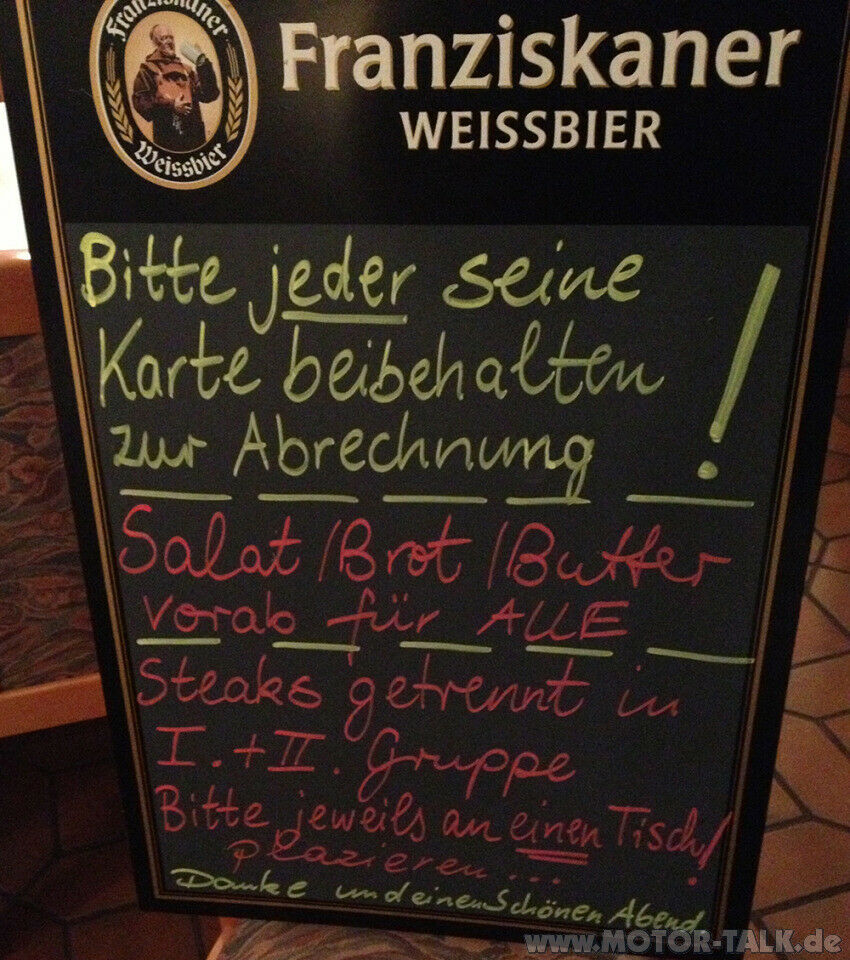 Franziskaner
Weissbier
Franziskaner
WEISSBIER
Bitte jeder seine
Karte beibehalten
zur Abrechnung !
Salat / Brot / Butter
vorab für ALLE
Steaks getrennt in
I. + II. Gruppe
Bitte jeweils an einen Tisch!
plazieren ...
Danke und einen Schönen Abend
www.MOTOR-TALK.de